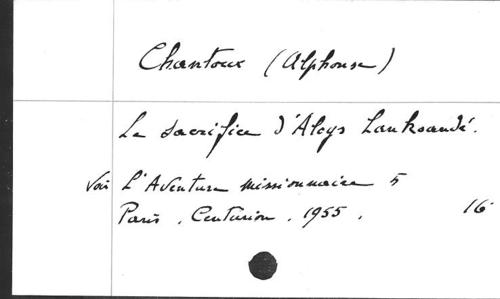 Chantoux (Alphonse)
Le sacrifice d'Aloys Lanksandé.
Voir L'Aventure missionnaire 5
Paris, Centurion, 1955. 16